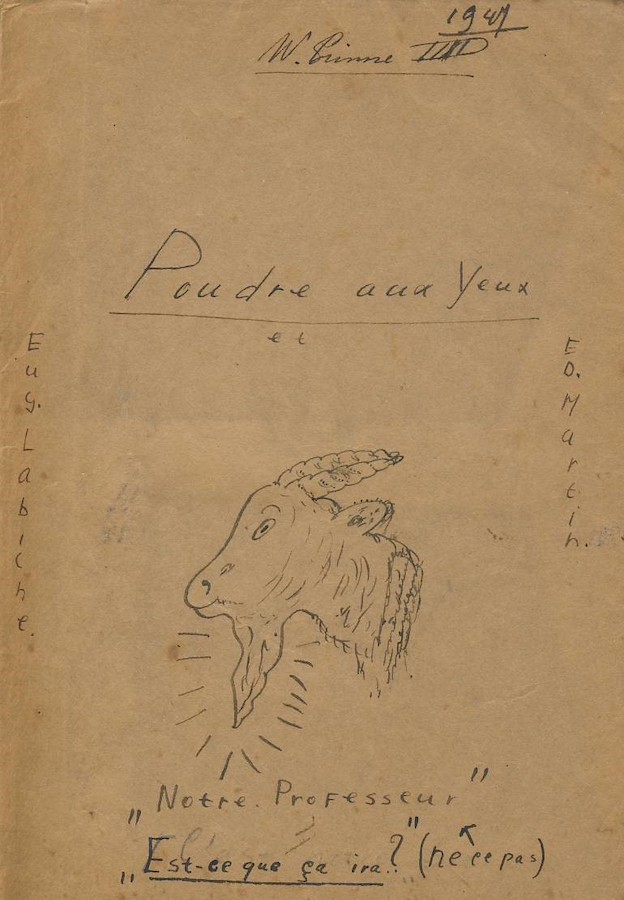 1941
W. Prinne IIII D
Poudre aux Yeux
et
Eug. Labiche.
ED. Martin.
„Notre. Professeur"
„Est-ce que ça ira..?" (ne ce pas)